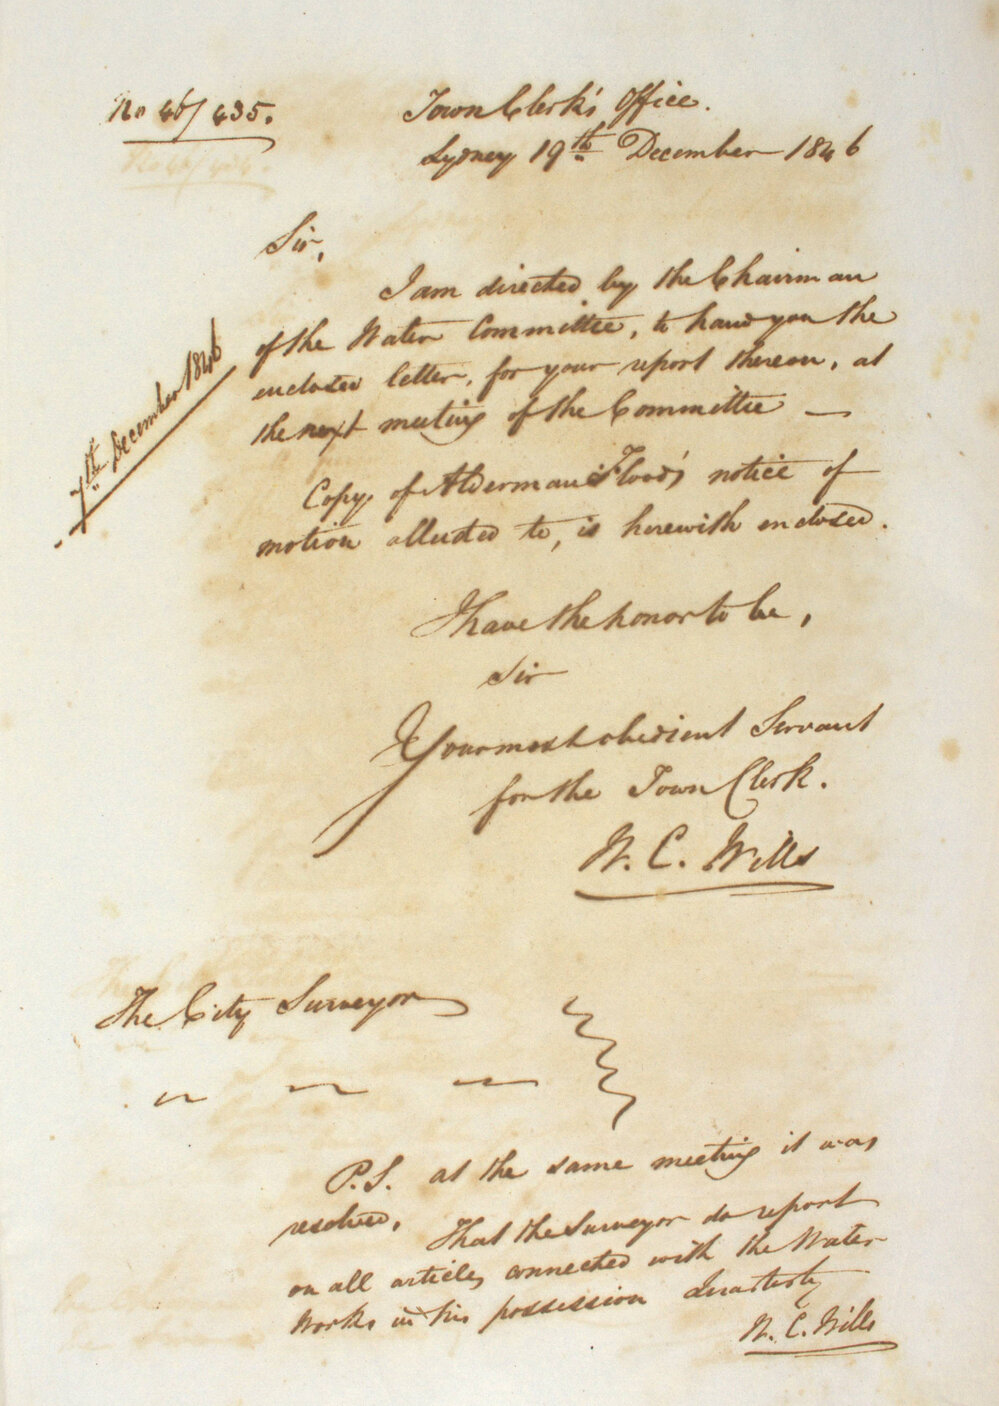 No 46/435.
Town Clerk's Office.
Sydney 19th December 1846
Sir,
I am directed by the Chairman
of the Water Committee, to hand you the
enclosed letter, for your report thereon, at
the next meeting of the Committee —
7th December 1846
Copy of Alderman Flood's notice of
motion alluded to, is herewith enclosed.
I have the honor to be,
Sir
Your most obedient Servant
for the Town Clerk.
W. C. Wills
The City Surveyor
P.S. at the same meeting it was
resolved, That the Surveyor do report
on all articles connected with the Water
Works in his possession Quarterly
W. C. Wills